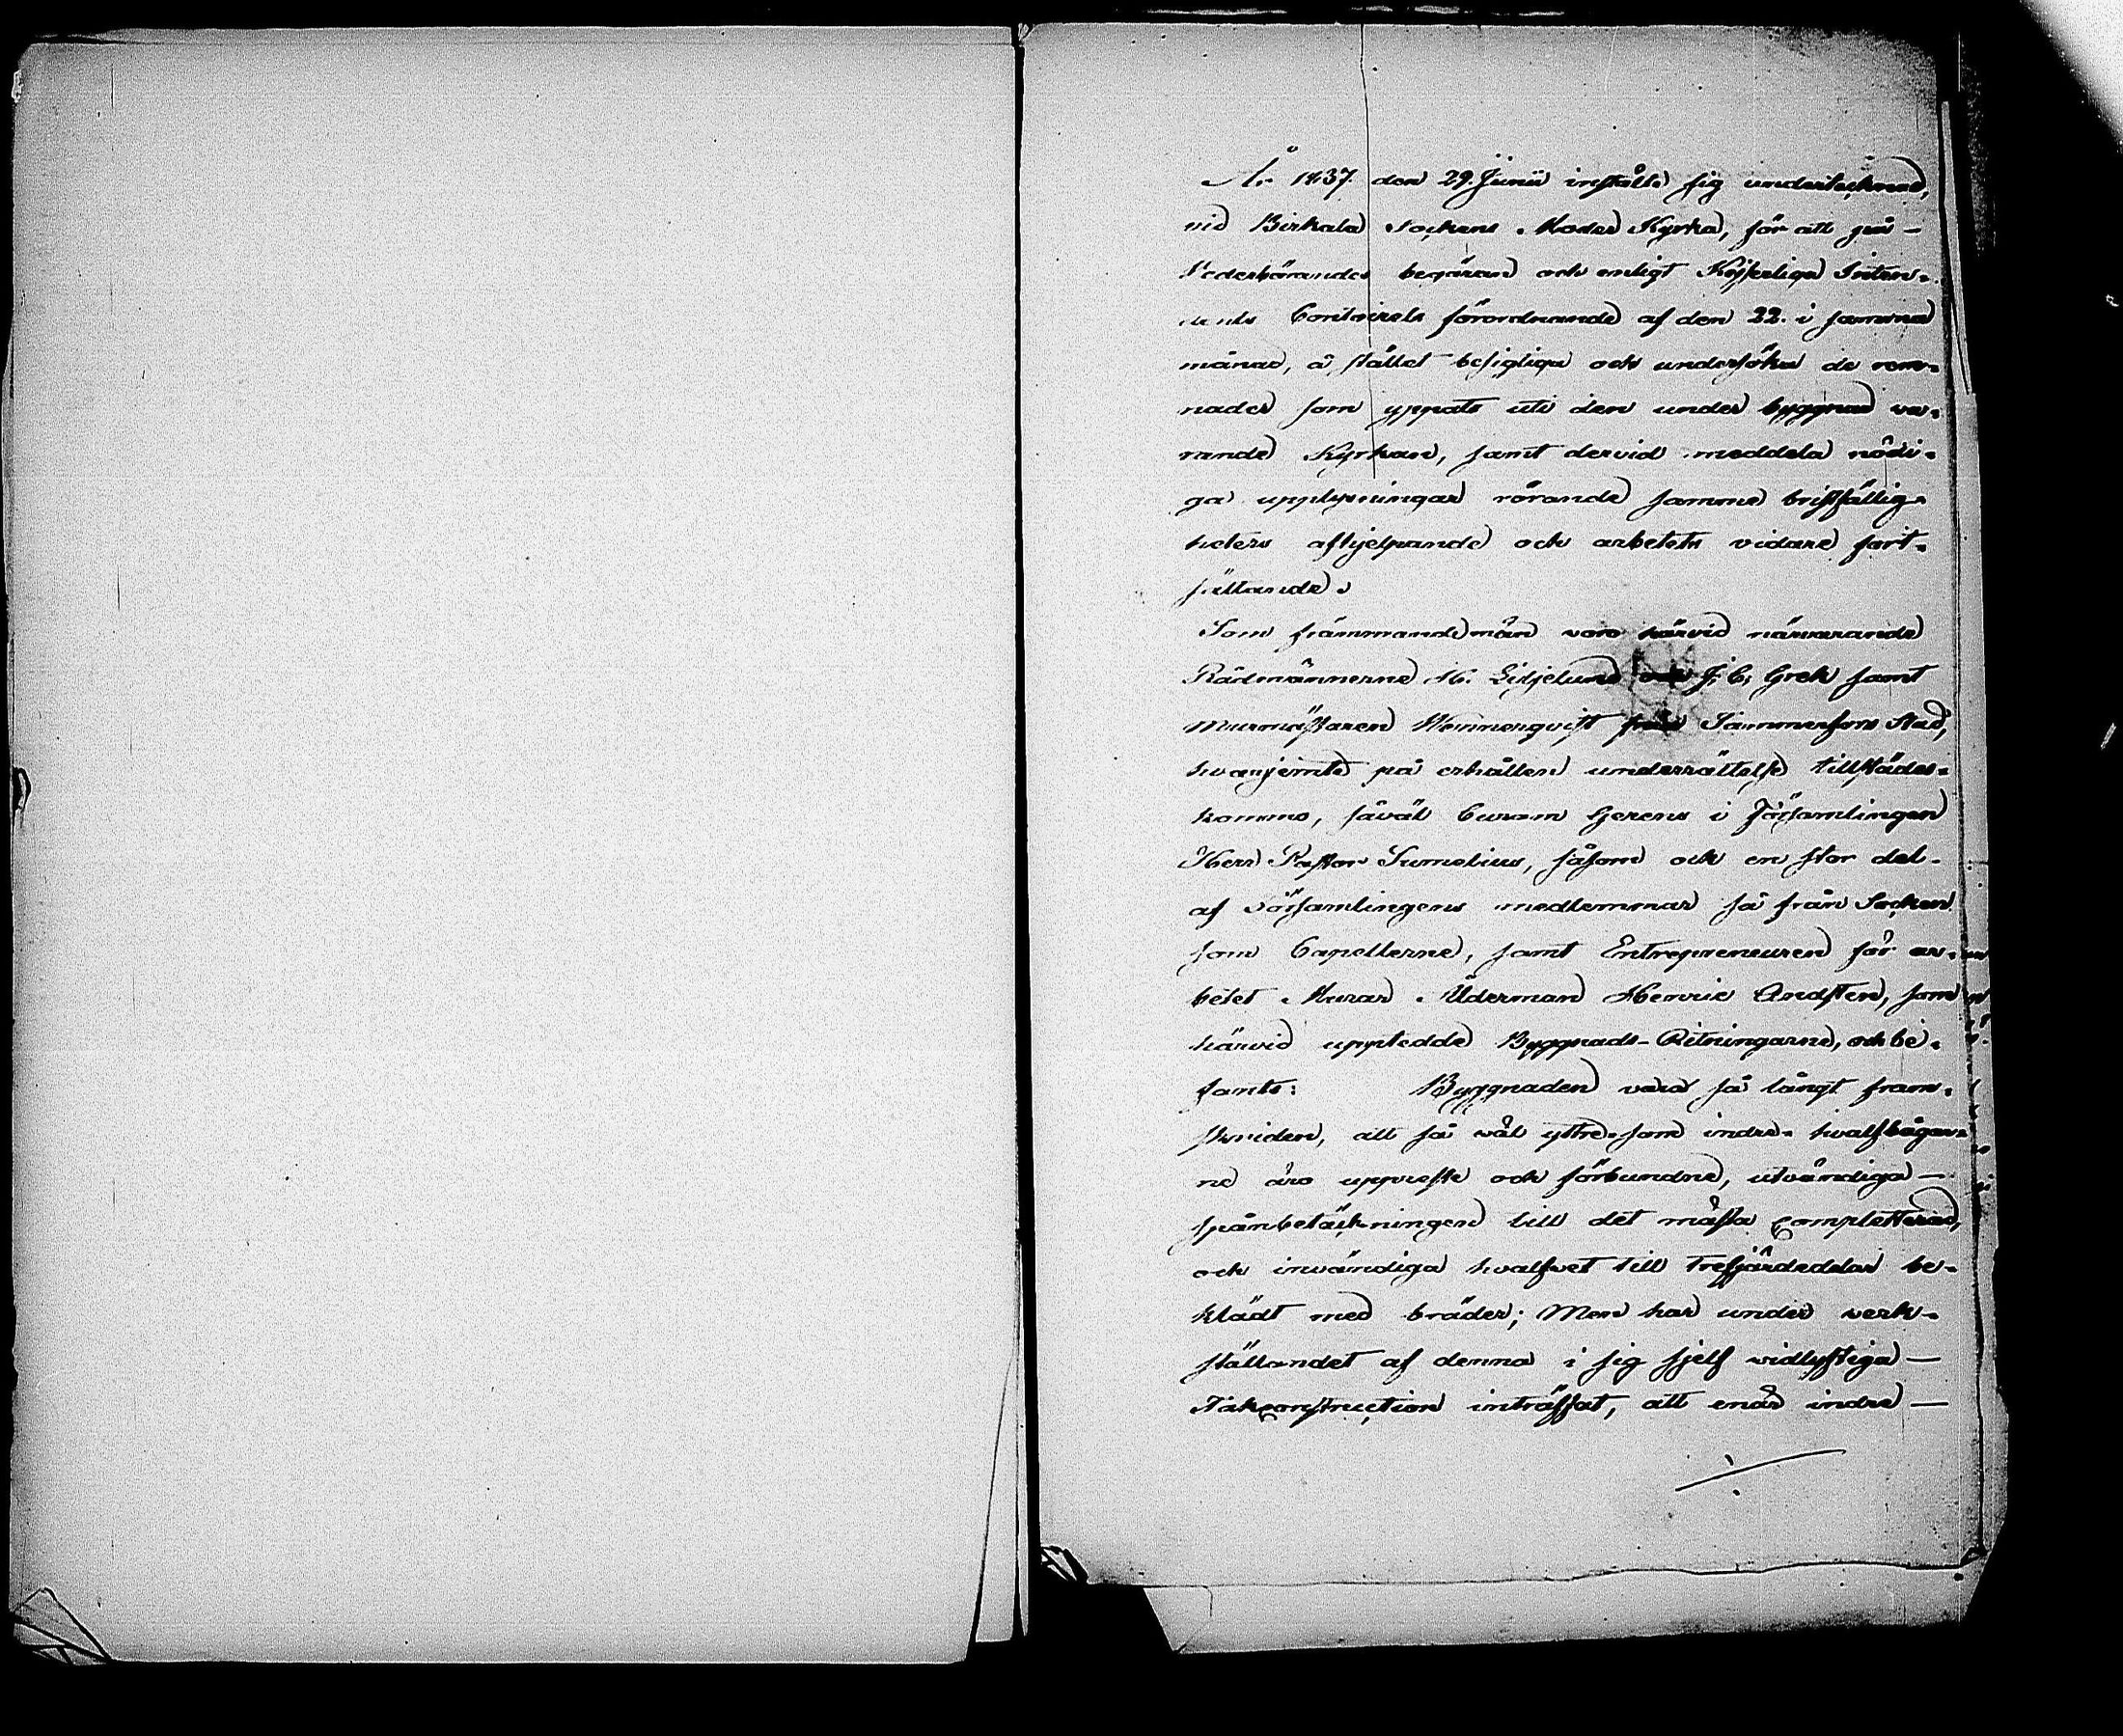 År 1837 den 29. Junii inställte sig undertecknad,
vid Birkala Sockens Moder Kyrka, för att på —
Vederbörandes begäran och enligt Kejserliga Inten-
dents Contoirets förordnande af den 22. i samma
månad, å stället besigtiga och undersöka de rem-
nader som yppats uti den under byggnad va-
rande Kyrkan, samt dervid meddela nödi-
ga upplysningar rörande samma bristfällig-
heters afhjelpande och arbetets vidare fort-
sättande.
Som främmande män voro härvid närvarande
Rådmännerne M. Liljelund och J. E. Grek samt
Murmästaren Wennerqvist från Tammerfors Stad,
hvarjemte på erhållen underrättelse tillstädes-
kommo, såväl Curam Gerens i Församlingen
Herr Pastor Sumelius, såsom ock en stor del
af Församlingens medlemmar så från Socken
som Capellerne, samt Entrepreneuren för ar-
betet Murar Ålderman Henric Andsten, som
härvid upptedde Byggnads-Ritningarne, och be-
fants: Byggnaden vara så långt fram-
skriden, att så väl yttre som indre hvalfbågar-
ne äro uppreste och förbundne, utvändiga —
spånbetäckningen till det mästa completterad,
och invändiga hvalfvet till trefjärdedelar be-
klädt med bräder; Men har under verk-
ställandet af denna i sig sjelf vidlyftiga —
Takconstruction inträffat, att enär indre —